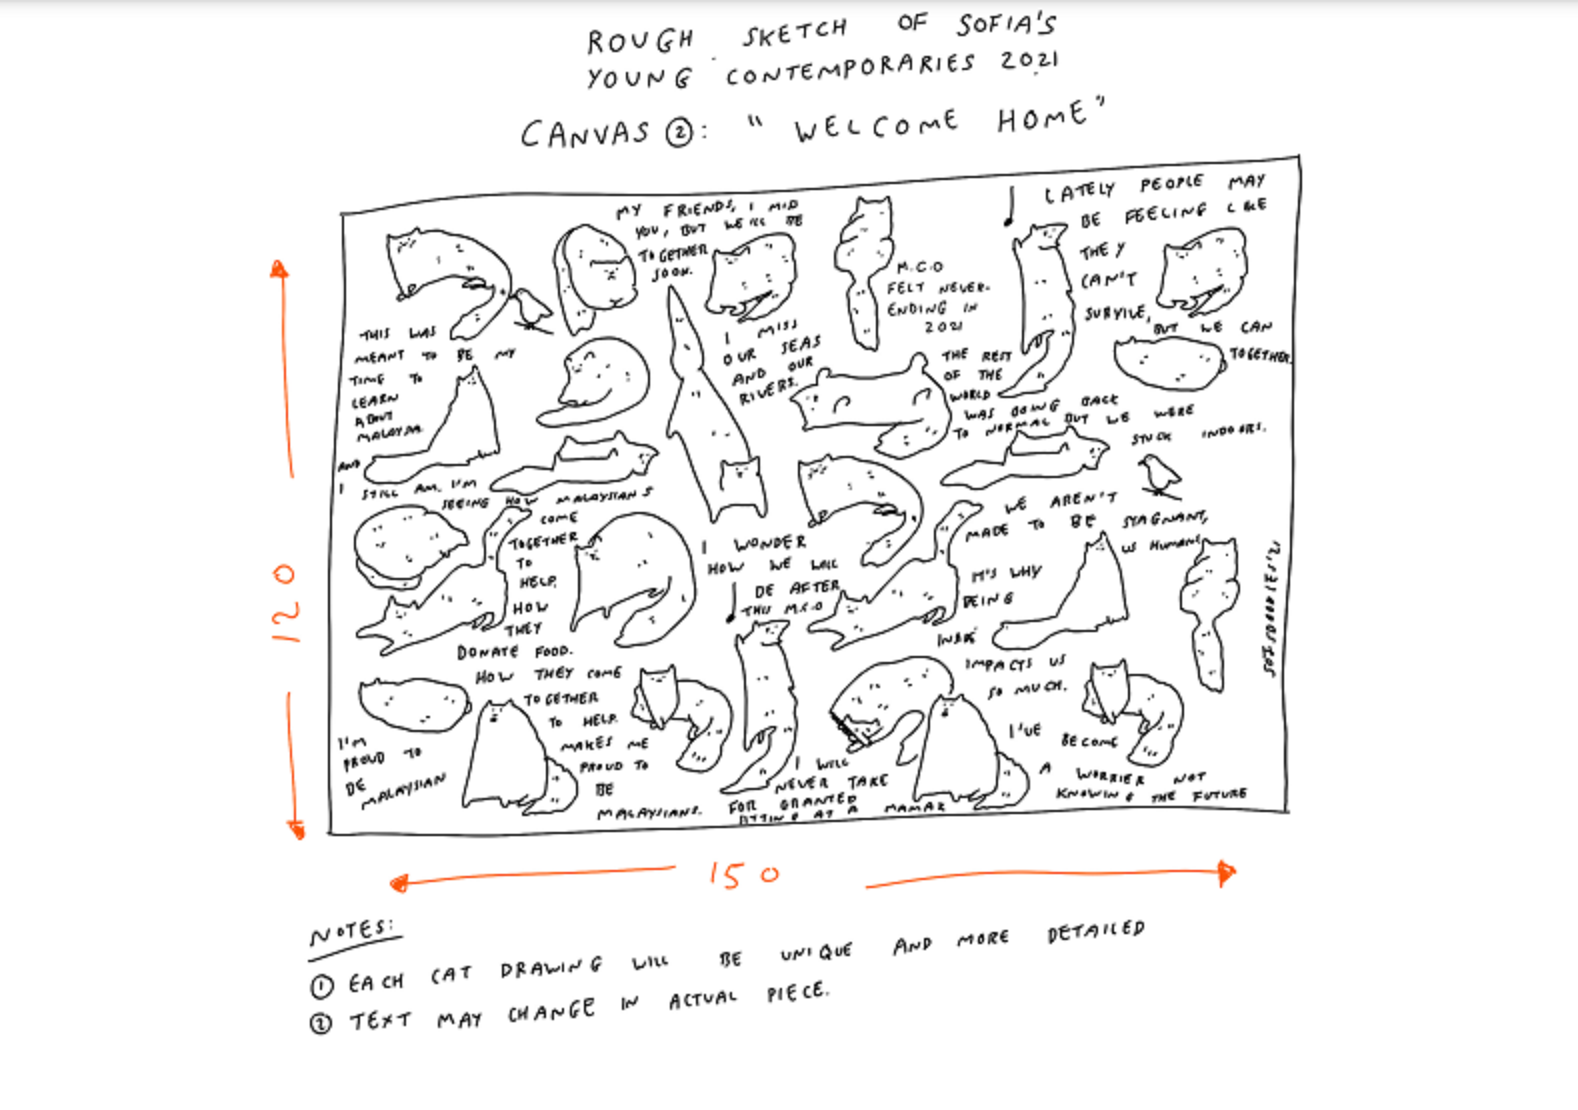 ROUGH SKETCH OF SOFIA'S
YOUNG CONTEMPORARIES 2021
CANVAS ②: "WELCOME HOME"
MY FRIENDS, I MID
YOU, BUT WE'LL BE
TOGETHER
SOON.
LATELY PEOPLE MAY
BE FEELING LIKE
THEY
CAN'T
SURVIVE,
BUT WE CAN
TOGETHER.
M.C.O
FELT NEVER-
ENDING IN
2021
THIS WAS
MEANT TO BE MY
TIME TO
LEARN
ABOUT
MALAYSIA.
AND
I STILL AM. I'M
SEEING HOW MALAYSIANS
COME
TOGETHER
TO
HELP,
HOW
THEY
DONATE FOOD.
HOW THEY COME
TOGETHER
TO HELP.
MAKES ME
PROUD TO
BE
MALAYSIANS.
I MISS
OUR SEAS
AND OUR
RIVERS.
THE REST
OF THE
WORLD
WAS GOING BACK
TO NORMAL BUT WE WERE
STUCK INDOORS.
WE AREN'T
MADE TO BE STAGNANT,
US HUMANS
IT'S WHY
BEING
IMPACTS US
SO MUCH.
I'VE BECOME
A WORRIER NOT
KNOWING THE FUTURE
I WONDER
HOW WE WILL
BE AFTER
THIS M.C.O
I WILL
NEVER TAKE
FOR GRANTED
SITTING AT A MAMAK
I'M
PROUD TO
BE
MALAYSIAN
120
150
NOTES:
① EACH CAT DRAWING WILL BE UNIQUE AND MORE DETAILED
② TEXT MAY CHANGE IN ACTUAL PIECE.